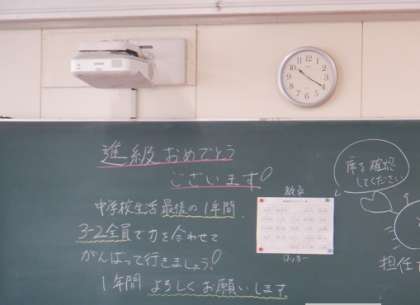 進級おめでとう
ございます!
中学校生活最後の1年間、
3-2全員で力を合わせて
がんばって行きましょう!
1年間 よろしくお願いします
教卓
ロッカー
席を確認
してください
担任